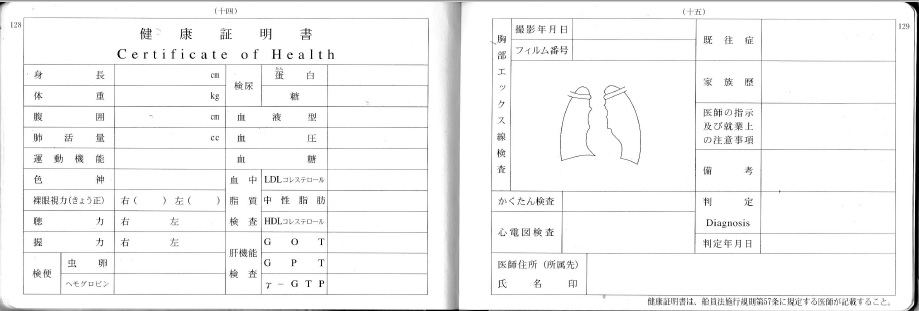 (十四)
128
健康証明書
Certificate of Health
身長 cm
体重 kg
腹囲 cm
肺活量 cc
運動機能
色神
裸眼視力(きょう正) 右( ) 左( )
聴力 右 左
握力 右 左
検便
虫卵
ヘモグロビン
検尿
蛋白
糖
血液型
血圧
血糖
血中
脂質
検査
LDLコレステロール
中性脂肪
HDLコレステロール
肝機能
検査
GOT
GPT
γ-GTP
(十五)
129
胸部エックス線検査
撮影年月日
フィルム番号
かくたん検査
心電図検査
既往症
家族歴
医師の指示
及び就業上
の注意事項
備考
判定
Diagnosis
判定年月日
医師住所(所属先)
氏名印
健康証明書は、船員法施行規則第57条に規定する医師が記載すること。